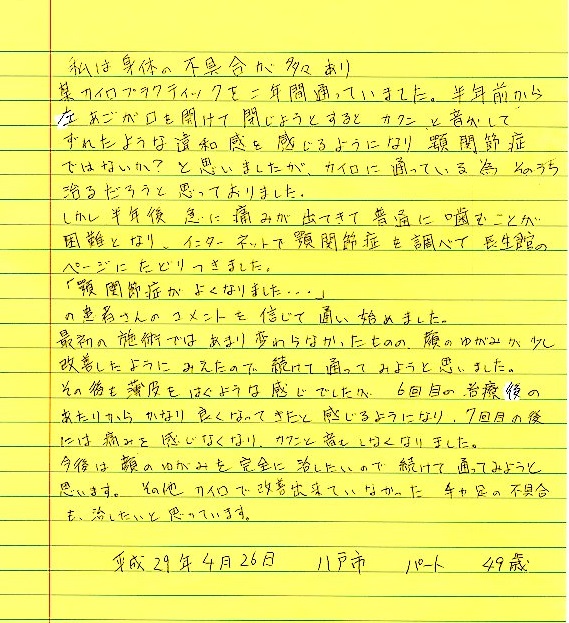 私は身体の不具合が多々あり
某カイロプラクティックを二年間通っていました。半年前から
左あごが口を開けて閉じようとするとカクンと音がして
ずれたような違和感を感じるようになり顎関節症
ではないか？と思いましたが、カイロに通っている為そのうち
治るだろうと思っておりました。
しかし半年後急に痛みが出てきて普通に噛むことが
困難となり、インターネットで顎関節症を調べて長生館の
ページにたどりつきました。
「顎関節症がよくなりました・・・」
の患者さんのコメントを信じて通い始めました。
最初の施術ではあまり変わらなかったものの、顔のゆがみが少し
改善したようにみえたので続けて通ってみようと思いました。
その後も薄皮をはぐような感じでしたが、6回目の治療後の
あたりからかなり良くなってきたと感じるようになり、7回目の後
には痛みを感じなくなり、カクンと音もしなくなりました。
今後は顔のゆがみを完全に治したいので続けて通ってみようと
思います。その他カイロで改善出来ていなかった手や足の不具合
も、治したいと思っています。
平成29年4月26日 八戸市 パート 49歳